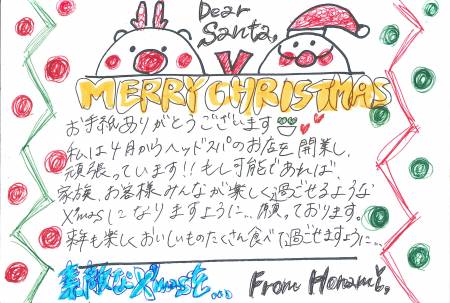 Dear
Santa,
MERRY CHRISTMAS
お手紙ありがとうございます
私は4月からヘッドスパのお店を開業し、
頑張っています!!もし可能であれば、
家族、お客様みんなが楽しく過ごせるような
X'masになりますように…願っております。
来年も楽しくおいしいものたくさん食べて過ごせますように…
素敵なX'masを…。
From Honami.